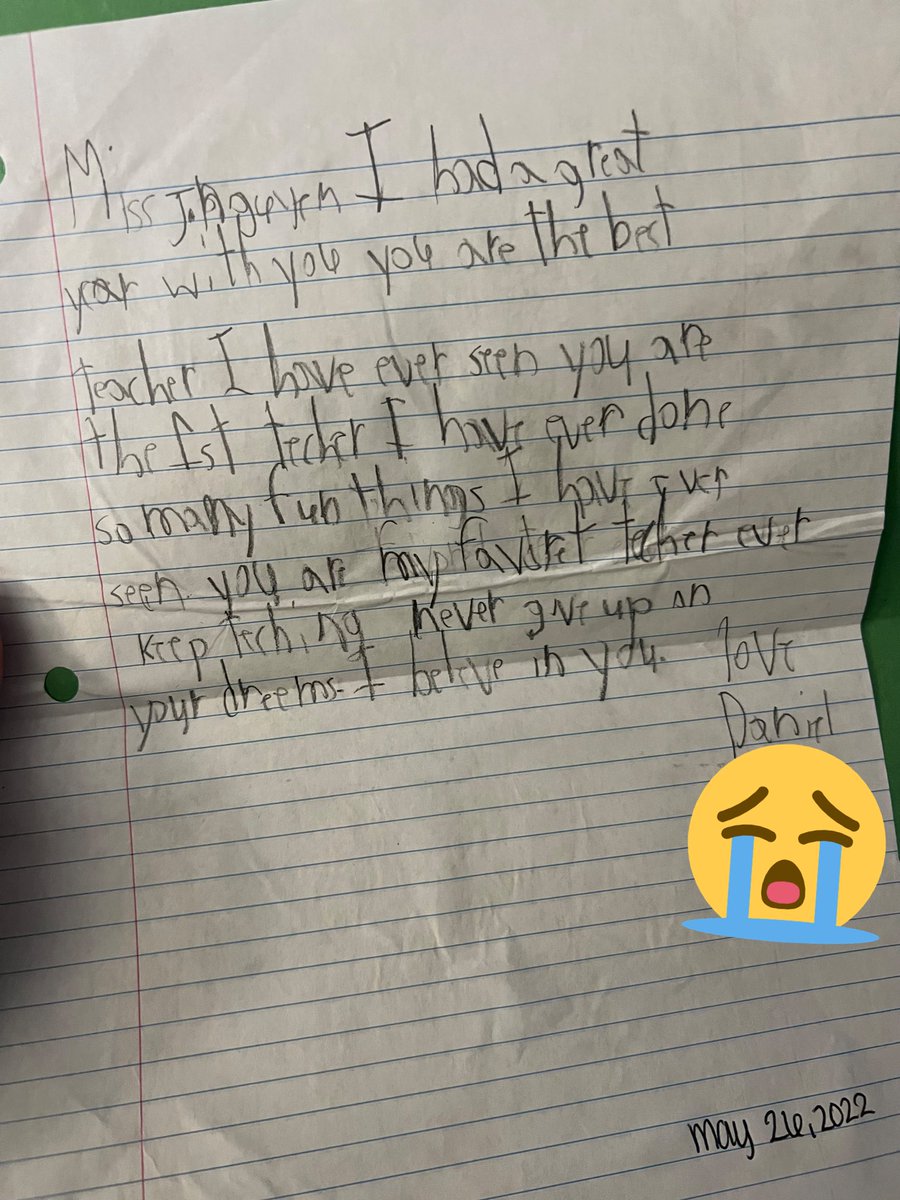 Miss J.Nguyen I had a great
year with you you are the best
teacher I have ever seen you are
the 1st techer I have ever done
so many fun things I have ever
seen. you are my favoret techer ever
Keep teching never give up on
your dreems. I beleve in you. love
Daniel
May 26, 2022